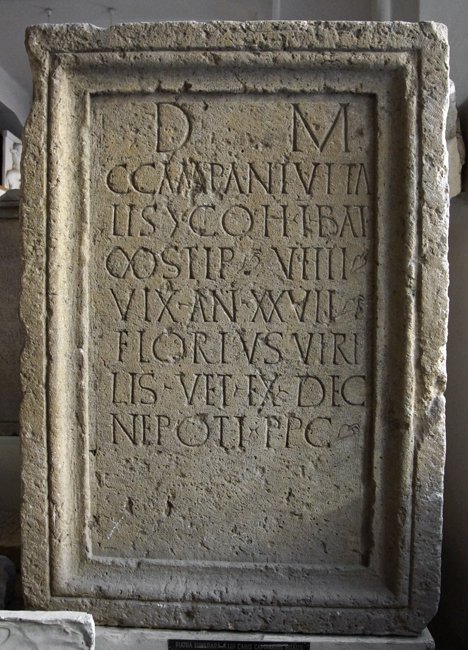 D M
C CAMPANI VITA
LIS 7 COH I BAT
∞ STIP VIIII
VIX AN XXVII
FLORIVS VIRI
LIS VET EX DEC
NEPOTI P P C